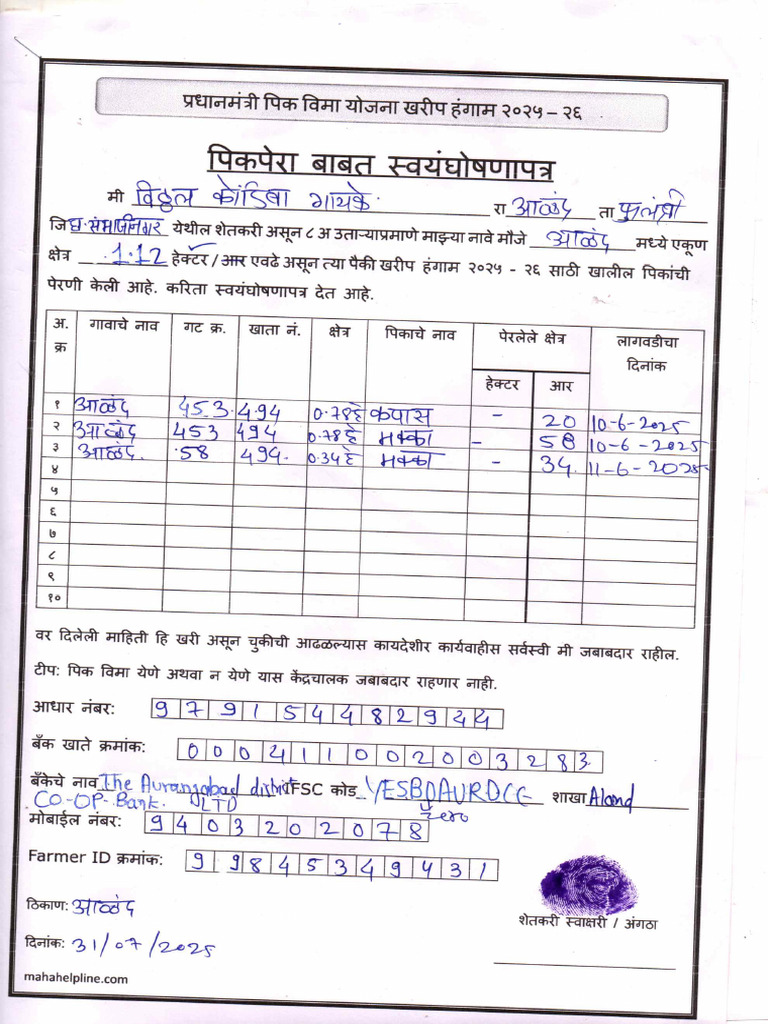 प्रधानमंत्री पिक विमा योजना खरीप हंगाम २०२५ – २६
पिकपेरा बाबत स्वयंघोषणापत्र
मी विठ्ठल कोंडिबा गायके रा आळंद ता फुलंब्री
जि छ. संभाजीनगर येथील शेतकरी असून ८ अ उताऱ्याप्रमाणे माझ्या नावे मौजे आळंद मध्ये एकूण
क्षेत्र 1.12 हेक्टर / आर एवढे असून त्या पैकी खरीप हंगाम २०२५ - २६ साठी खालील पिकांची
पेरणी केली आहे. करिता स्वयंघोषणापत्र देत आहे.
अ. क्र गावाचे नाव गट क्र. खाता नं. क्षेत्र पिकाचे नाव पेरलेले क्षेत्र लागवडीचा दिनांक
हेक्टर आर
१ आळंद 453. 494 0.78हे कपास - 20 10-6-2025
२ आळंद 453 494 0.78हे मक्का - 58 10-6-2025
३ आळंद. 58 494. 0.34हे मक्का - 34. 11-6-2025
४
५
६
७
८
९
१०
वर दिलेली माहिती हि खरी असून चुकीची आढळल्यास कायदेशीर कार्यवाहीस सर्वस्वी मी जबाबदार राहील.
टीप: पिक विमा येणे अथवा न येणे यास केंद्रचालक जबाबदार राहणार नाही.
आधार नंबर: 9 7 9 1 5 4 4 8 2 9 4 4
बँक खाते क्रमांक: 0 0 0 4 1 1 0 0 2 0 0 3 2 8 3
बँकेचे नाव The Aurangabad district IFSC कोड YESB0AURDCC शाखा Aland
CO-OP-Bank. LTD zero
मोबाईल नंबर: 9 4 0 3 2 0 2 0 7 8
Farmer ID क्रमांक: 9 9 8 4 5 3 4 9 4 3 1
ठिकाण: आळंद
शेतकरी स्वाक्षरी / अंगठा
दिनांक: 31/07/2025
mahahelpline.com